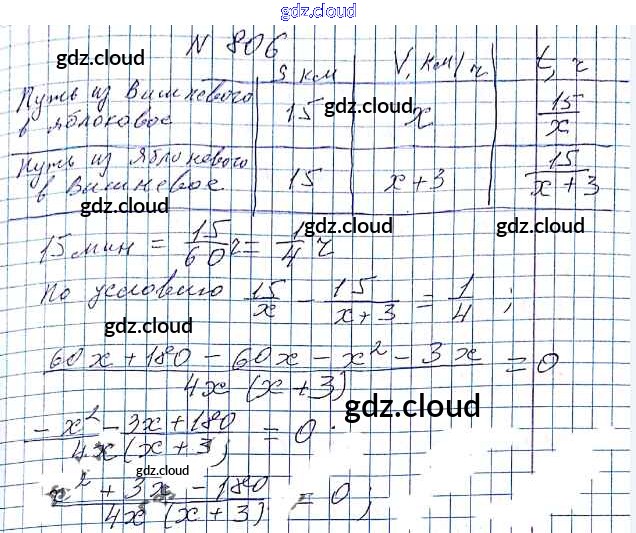 gdz.cloud
N 806
S км V, км/ч t, ч
Путь из Вишневого в яблоковое 15 x 15/x
Путь из Яблоневого в Вишневое 15 x+3 15/(x+3)
15 мин = 15/60 ч = 1/4 ч
По условию 15/x - 15/(x+3) = 1/4 ;
(60x+180-60x-x²-3x)/(4x(x+3)) = 0
(-x²-3x+180)/(4x(x+3)) = 0 ;
(x²+3x-180)/(4x(x+3)) = 0 ;
gdz.cloud
gdz.cloud
gdz.cloud
gdz.cloud
gdz.cloud
gdz.cloud
gdz.cloud
gdz.cloud
gdz.cloud
gdz.cloud
gdz.cloud